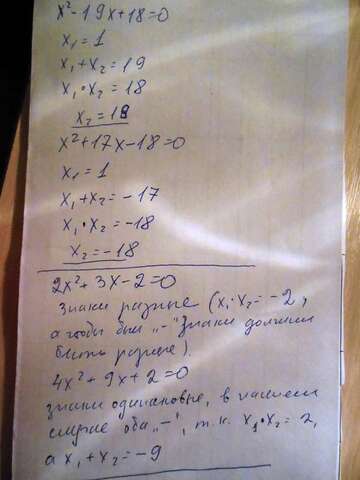 x² - 19x + 18 = 0
x₁ = 1
x₁ + x₂ = 19
x₁ · x₂ = 18
x₂ = 18
x² + 17x - 18 = 0
x₁ = 1
x₁ + x₂ = -17
x₁ · x₂ = -18
x₂ = -18
2x² + 3x - 2 = 0
Знаки разные (x₁ · x₂ = -2,
а чтобы был „-" знаки должны
быть разные).
4x² + 9x + 2 = 0
знаки одинаковые, в нашем
случае оба „-", т.к. x₁ · x₂ = 2,
а x₁ + x₂ = -9